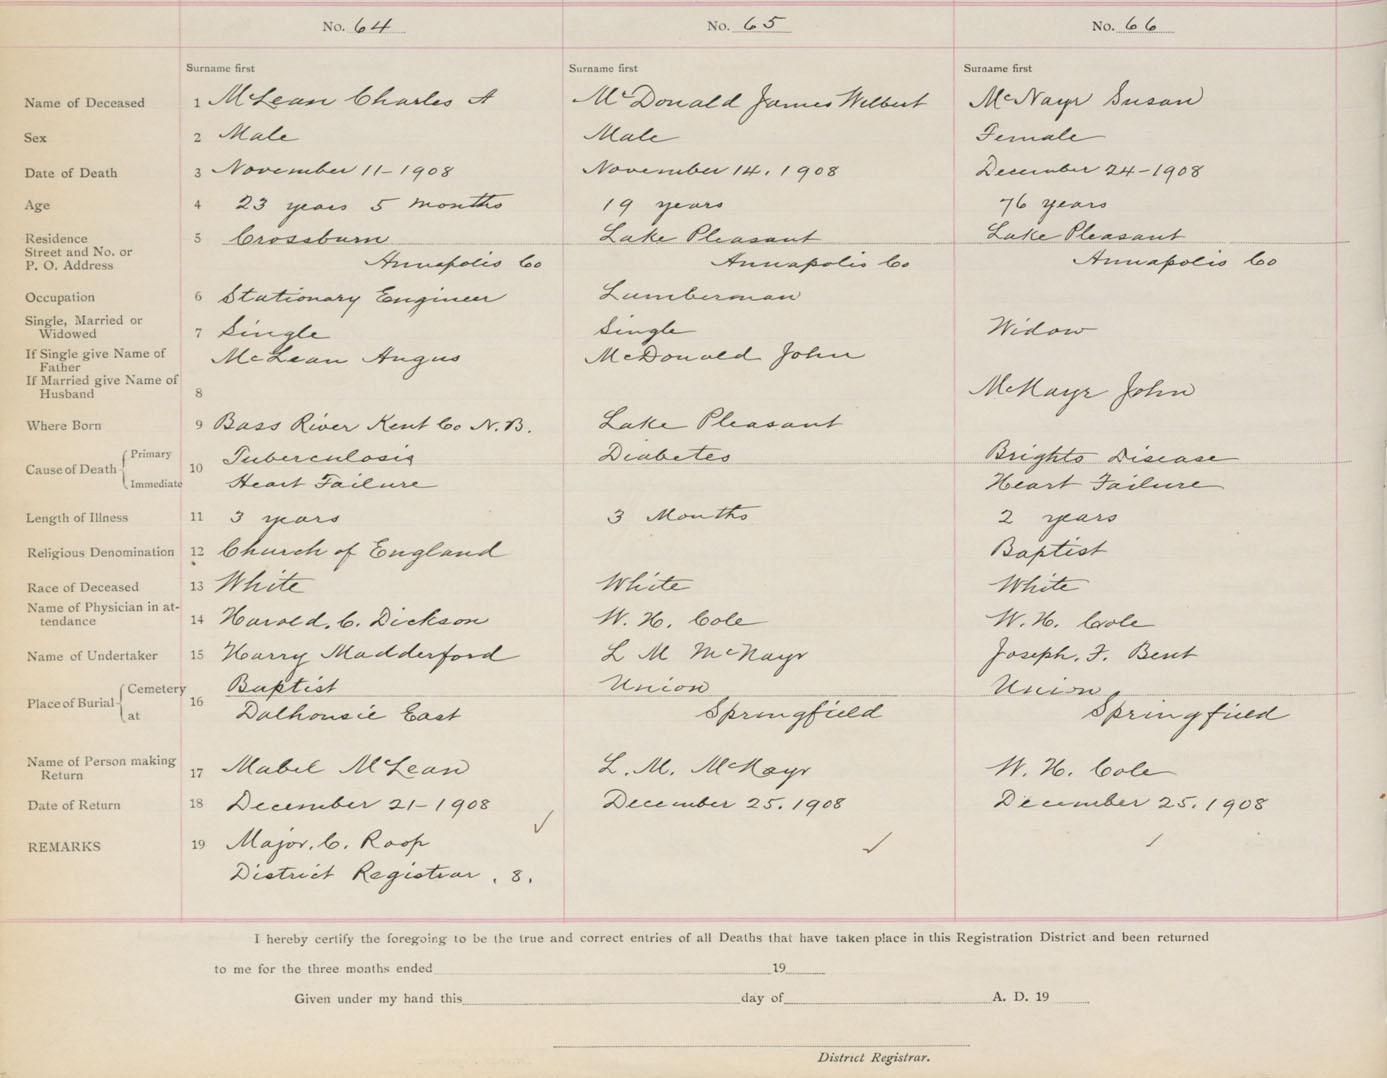 No. 64 No. 65 No. 66
Surname first Surname first Surname first
Name of Deceased 1 McLean Charles A McDonald James Wilbert McNayr Susan
Sex 2 Male Male Female
Date of Death 3 November 11-1908 November 14. 1908 December 24-1908
Age 4 23 years 5 months 19 years 76 years
Residence 5 Crossburn Lake Pleasant Lake Pleasant
Street and No. or
P. O. Address Annapolis Co Annapolis Co Annapolis Co
Occupation 6 Stationary Engineer Lumberman
Single, Married or
Widowed 7 Single Single Widow
If Single give Name of
Father McLean Angus McDonald John
If Married give Name of
Husband 8 McNayr John
Where Born 9 Bass River Kent Co N.B. Lake Pleasant
Primary Tuberculosis Diabetes Brights Disease
Cause of Death 10
Immediate Heart Failure Heart Failure
Length of Illness 11 3 years 3 Months 2 years
Religious Denomination 12 Church of England Baptist
Race of Deceased 13 White White White
Name of Physician in at-
tendance 14 Harold. C. Dickson W. H. Cole W. H. Cole
Name of Undertaker 15 Harry Madderford L M McNayr Joseph. F. Bent
Cemetery Baptist Union Union
Place of Burial 16
at Dalhousie East Springfield Springfield
Name of Person making
Return 17 Mabel McLean L. M. McNayr W. H. Cole
Date of Return 18 December 21-1908 December 25. 1908 December 25. 1908
REMARKS 19 Major. C. Roop
District Registrar . 8.
I hereby certify the foregoing to be the true and correct entries of all Deaths that have taken place in this Registration District and been returned
to me for the three months ended 19
Given under my hand this day of A. D. 19
District Registrar.